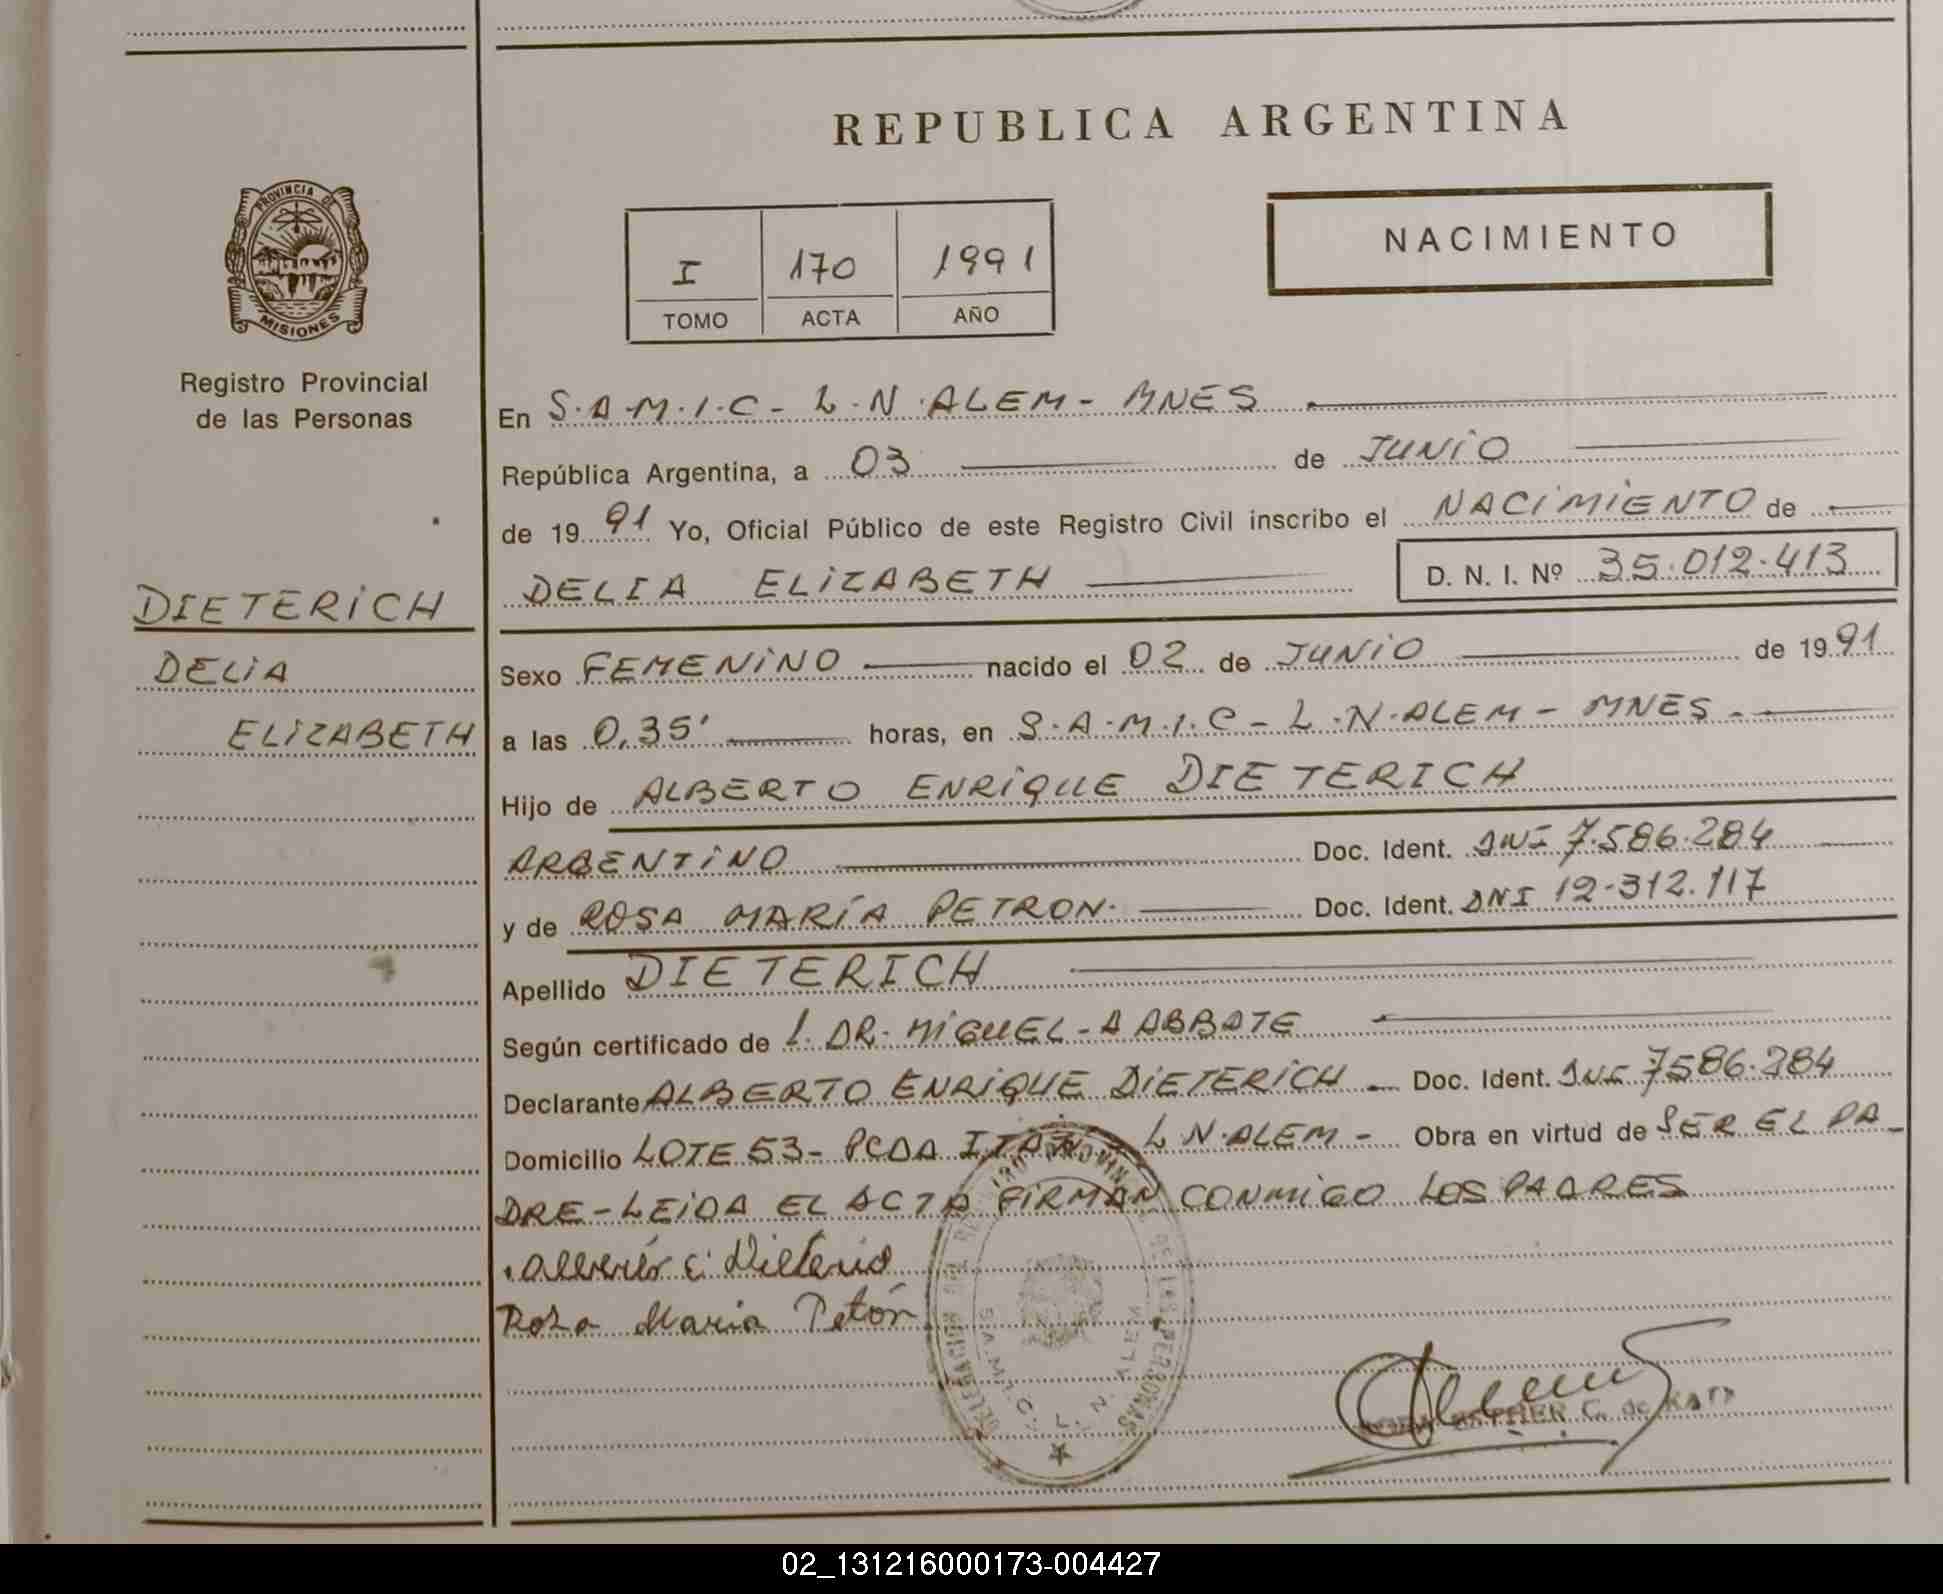 REPUBLICA ARGENTINA
PROVINCIA DE
MISIONES
Registro Provincial
de las Personas
I 170 1991
TOMO ACTA AÑO
NACIMIENTO
DIETERICH
DELIA
ELIZABETH
En S.A.M.I.C - L.N.ALEM - MNES
República Argentina, a 03 de JUNIO
de 19 91 Yo, Oficial Público de este Registro Civil inscribo el NACIMIENTO de
DELIA ELIZABETH D. N. I. Nº 35.012.413
Sexo FEMENINO nacido el 02 de JUNIO de 19 91
a las 0,35' horas, en S.A.M.I.C - L.N.ALEM - MNES -
Hijo de ALBERTO ENRIQUE DIETERICH
ARGENTINO Doc. Ident. DNI 7.586.284
y de ROSA MARÍA PETRON. Doc. Ident. DNI 12.312.117
Apellido DIETERICH
Según certificado de l. DR. MIGUEL - A ABBATE
Declarante ALBERTO ENRIQUE DIETERICH - Doc. Ident. DNI 7586.284
Domicilio LOTE 53 - PCDA L.N.ALEM - Obra en virtud de SER EL PA_
DRE - LEIDA EL ACTA FIRMAN CONMIGO LOS PADRES
Rosa Maria Petón
DELEGACION DEL REGISTRO PROVINCIAL DE LAS PERSONAS
S.A.M.I.C. L. N. ALEM
ESTHER C. de
02_131216000173-004427